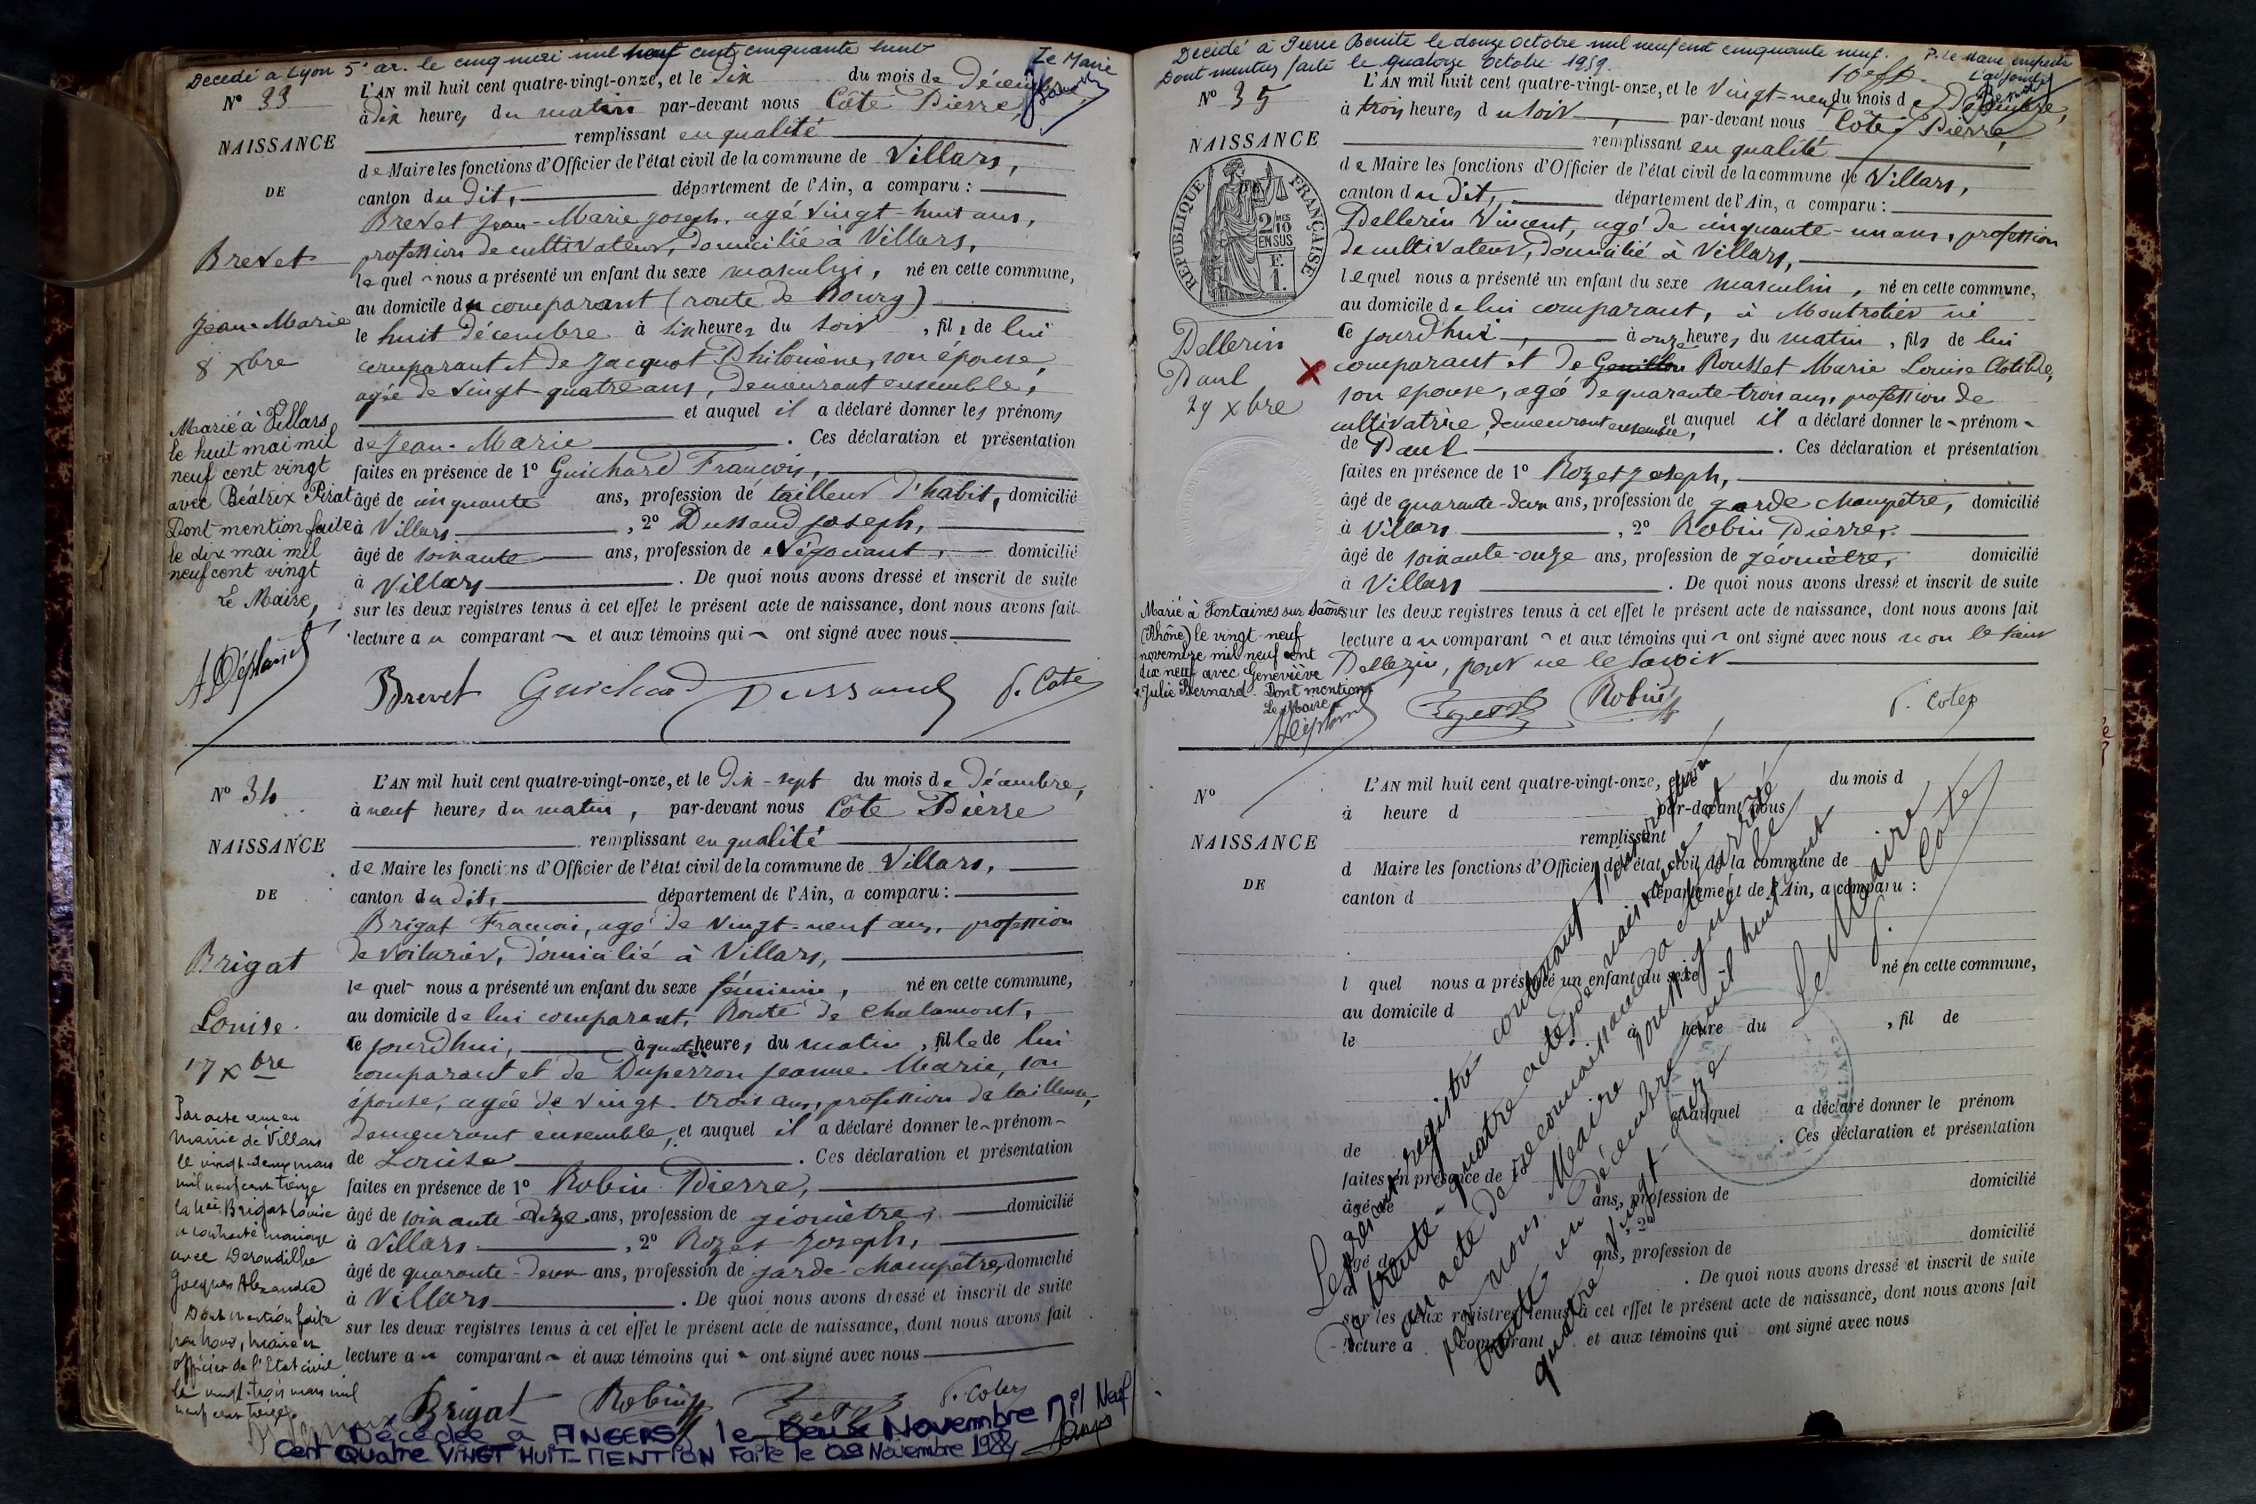 Décédé à Lyon 5e ar. le cinq mai mil neuf cent cinquante huit
Le Maire
N° 33
NAISSANCE
DE
Brevet
Jean-Marie
8 xbre
Marié à Villars
le huit mai mil
neuf cent vingt
avec Béatrix Pirat
Dont mention faite
le dix mai mil
neuf cent vingt
Le Maire,
L'AN mil huit cent quatre-vingt-onze, et le dix du mois de Décembre
à dix heures du matin par-devant nous Côte Pierre,
remplissant en qualité
de Maire les fonctions d'Officier de l'état civil de la commune de Villars,
canton du dit, département de l'Ain, a comparu :
Brevet Jean-Marie Joseph, agé vingt-huit ans,
profession de cultivateur, domicilié à Villars,
lequel nous a présenté un enfant du sexe masculin, né en cette commune,
au domicile du comparant (route de Bourg)
le huit décembre à six heures du soir, fils de lui
comparant et de Jacquot Philomène, son épouse,
agée de vingt quatre ans, demeurant ensemble,
et auquel il a déclaré donner les prénoms
de Jean-Marie. Ces déclaration et présentation
faites en présence de 1° Guichard François,
âgé de cinquante ans, profession de tailleur d'habit, domicilié
à Villars, 2° Dussaud Joseph,
âgé de soixante ans, profession de Négociant, domicilié
à Villars. De quoi nous avons dressé et inscrit de suite
sur les deux registres tenus à cet effet le présent acte de naissance, dont nous avons fait
lecture au comparant et aux témoins qui ont signé avec nous
Brevet Guichard Dussaud P. Cote
N° 34
NAISSANCE
DE
Brigat
Louise.
17 xbre
Par acte reçu en
mairie de Villars
le vingt-deux mars
mil neuf cent treize
la née Brigat Louise
a contracté mariage
avec Deroudilhe
Jacques Alexandre
Dont mention faite
par nous, maire et
officier de l'Etat civil
le vingt-trois mars mil
neuf cent treize
L'AN mil huit cent quatre-vingt-onze, et le dix-sept du mois de Décembre,
à neuf heures du matin, par-devant nous Côte Pierre
remplissant en qualité
de Maire les fonctions d'Officier de l'état civil de la commune de Villars,
canton du dit, département de l'Ain, a comparu :
Brigat François, agé de vingt-neuf ans, profession
de voiturier, domicilié à Villars,
le quel nous a présenté un enfant du sexe féminin, né en cette commune,
au domicile de lui comparant, Route de Chalamont,
ce jourd'hui, à quatre heures du matin, fille de lui
comparant et de Duperron Jeanne-Marie, son
épouse, agée de vingt-trois ans, profession de tailleuse,
demeurant ensemble, et auquel il a déclaré donner le prénom
de Louise. Ces déclaration et présentation
faites en présence de 1° Robin Pierre,
âgé de soixante-onze ans, profession de géomètre, domicilié
à Villars, 2° Rozet Joseph,
âgé de quarante-deux ans, profession de garde champêtre, domicilié
à Villars. De quoi nous avons dressé et inscrit de suite
sur les deux registres tenus à cet effet le présent acte de naissance, dont nous avons fait
lecture au comparant et aux témoins qui ont signé avec nous
Brigat Robin P. Cote
Décédée à ANGERS, le Deux Novembre Mil Neuf
Cent Quatre VINGT HUIT-MENTION Faite le 09 Novembre 1988
Décédé à Pierre Bénite le douze octobre mil neuf cent cinquante neuf.
Dont mention faite le quatorze octobre 1959.
P. le Maire empêché
L'adjoint
N° 35
NAISSANCE
RÉPUBLIQUE FRANÇAISE
2/10 EN SUS
F. 1.
Pellerin
Paul
29 xbre
Marié à Fontaines sur Saône
(Rhône) le vingt-neuf
novembre mil neuf cent
dix neuf avec Geneviève
Julie Bernard. Dont mention
Le Maire
L'AN mil huit cent quatre-vingt-onze, et le vingt-neuf du mois de Décembre,
à trois heures du soir, par-devant nous Côte Pierre,
remplissant en qualité
de Maire les fonctions d'Officier de l'état civil de la commune de Villars,
canton du dit, département de l'Ain, a comparu :
Pellerin Vincent, agé de cinquante-un ans, profession
de cultivateur, domicilié à Villars,
lequel nous a présenté un enfant du sexe masculin, né en cette commune,
au domicile de lui comparant, à Montrotier né
Ce jourd'hui, à onze heures du matin, fils de lui
comparant et de Rousset Marie Louise Clotilde,
son épouse, agée de quarante-trois ans, profession de
cultivatrice, demeurant ensemble, et auquel il a déclaré donner le prénom
de Paul. Ces déclaration et présentation
faites en présence de 1° Rozet Joseph,
âgé de quarante-deux ans, profession de garde champêtre, domicilié
à Villars, 2° Robin Pierre,
âgé de soixante-onze ans, profession de géomètre, domicilié
à Villars. De quoi nous avons dressé et inscrit de suite
sur les deux registres tenus à cet effet le présent acte de naissance, dont nous avons fait
lecture au comparant et aux témoins qui ont signé avec nous non le sieur
Pellerin, pour ne le savoir
Robin P. Cote
N°
NAISSANCE
DE
L'AN mil huit cent quatre-vingt-onze, et le du mois d
à heure d par-devant nous
remplissant
d Maire les fonctions d'Officier de l'état civil de la commune de
canton d département de l'Ain, a comparu :
l quel nous a présenté un enfant du sexe né en cette commune,
au domicile d
le à heure du , fil de
et auquel a déclaré donner le prénom
de . Ces déclaration et présentation
faites en présence de
âgé de ans, profession de domicilié
, 2°
âgé de ans, profession de domicilié
. De quoi nous avons dressé et inscrit de suite
sur les deux registres tenus à cet effet le présent acte de naissance, dont nous avons fait
lecture a comparant et aux témoins qui ont signé avec nous
Le présent registre contenant
de trente-quatre actes de naissance et
un acte de reconnaissance a été arrêté
par nous Maire soussigné le
trente-un décembre mil huit cent
quatre-vingt-onze
Le Maire
P. Cote